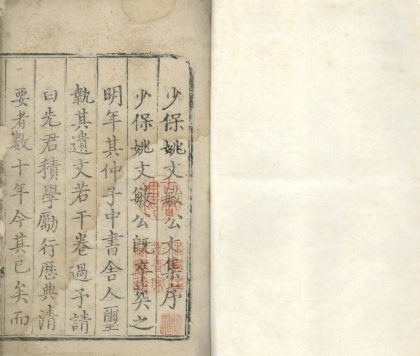 少保姚文敏公文集序
少保姚文敏公既卒葬之
明年其仲子中書舍人璽
執其遺文若干卷過予請
曰先君積學勵行歷典清
要者數十年今其已矣而